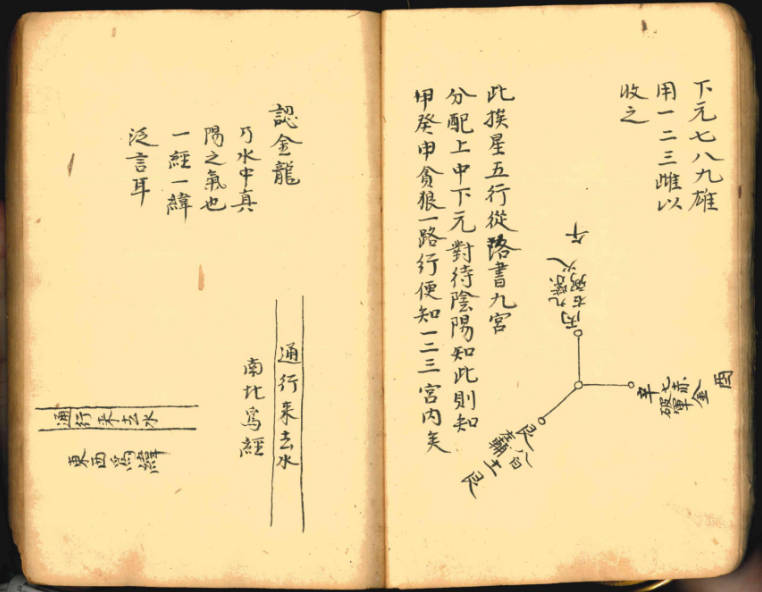 下元七八九雄
用一二三雌以
收之
午
丙九紫
右弼火
酉
七赤
破軍
金
辛
艮八白
左輔土
艮
此挨星五行從落書九宮
分配上中下元對待陰陽知此則知
甲癸申貪狼一路行便知一二三宮內矣
認金龍
乃水中真
陽之氣也
一經一緯
泛言耳
通行來去水
南北爲經
通行來去水
東西爲緯